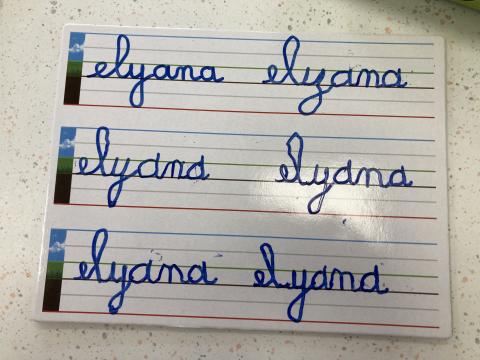 elyana elyana
elyana elyana
elyana elyana